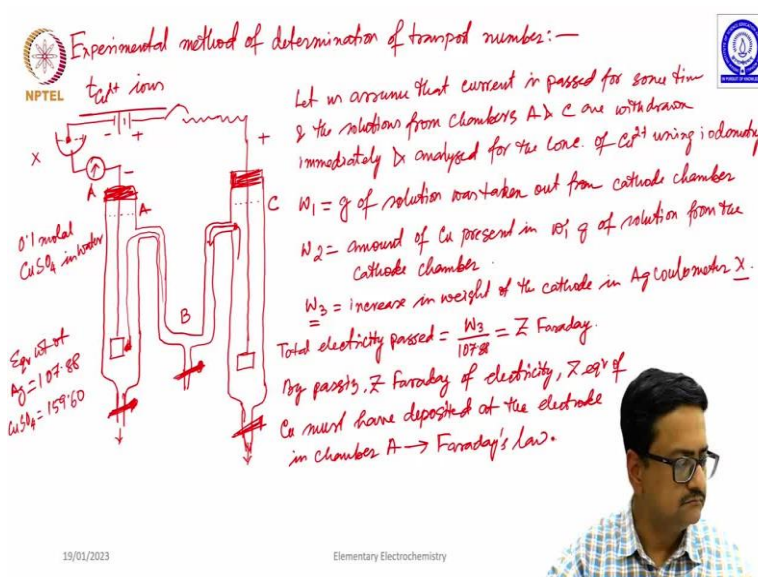 Experimental method of determination of transport number:—
NPTEL
tCu2+ ions
- +
X
A
-
+
A
C
B
0.1 molal
CuSO4 in water
Eqv wt of
Ag = 107.88
CuSO4 = 159.60
Let us assume that current is passed for some time
& the solutions from chambers A & C are withdrawn
immediately & analysed for the conc. of Cu2+ using iodometry
W1 = g of solution was taken out from cathode chamber
W2 = amount of Cu present in W1 g of solution from the
cathode chamber.
W3 = increase in weight of the cathode in Ag Coulometer X.
Total electricity passed = W3/107.88 = Z Faraday.
By passing Z Faraday of electricity, Z eqv of
Cu must have deposited at the electrode
in chamber A → Faraday's law.
19/01/2023
Elementary Electrochemistry